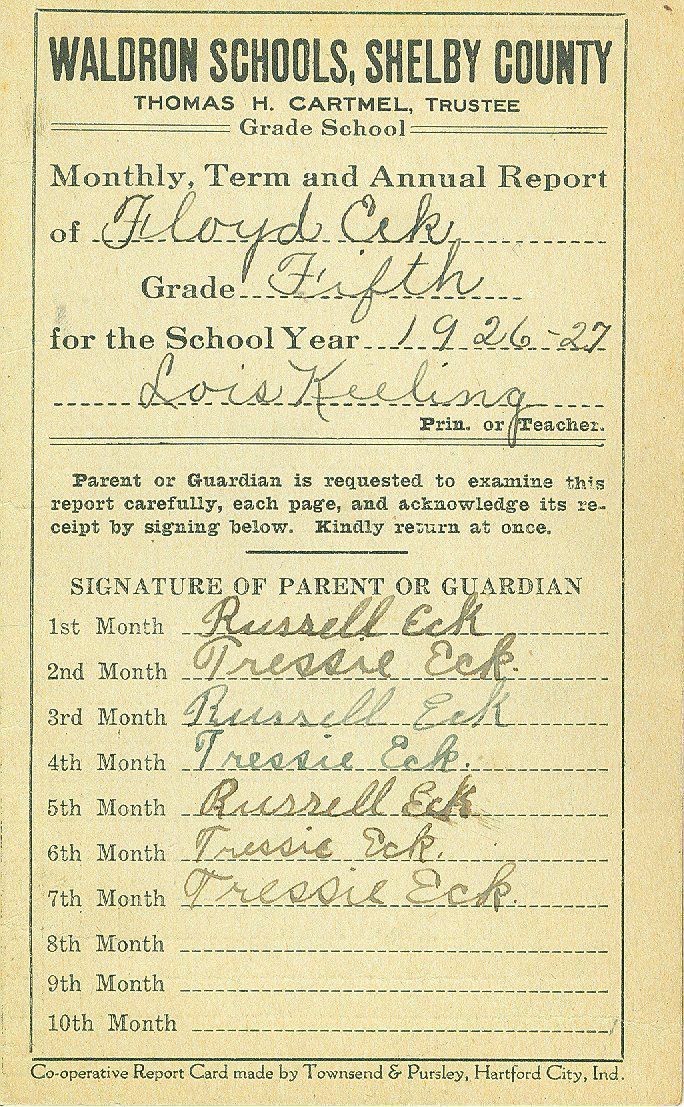 WALDRON SCHOOLS, SHELBY COUNTY
THOMAS H. CARTMEL, TRUSTEE
Grade School
Monthly, Term and Annual Report
of Floyd Eck
Grade Fifth
for the School Year 1926-27
Lois Keeling
Prin. or Teacher.
Parent or Guardian is requested to examine this
report carefully, each page, and acknowledge its re-
ceipt by signing below. Kindly return at once.
SIGNATURE OF PARENT OR GUARDIAN
1st Month Russell Eck
2nd Month Tressie Eck.
3rd Month Russell Eck
4th Month Tressie Eck.
5th Month Russell Eck
6th Month Tressie Eck.
7th Month Tressie Eck.
8th Month
9th Month
10th Month
Co-operative Report Card made by Townsend & Pursley, Hartford City, Ind.